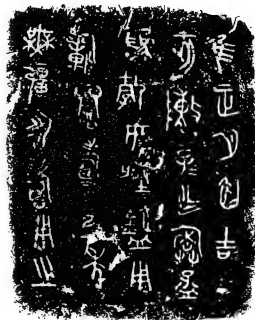 隹正月初吉丁
亥敶子子乍孟
媯穀母媵匜用
眉壽萬年
無疆永壽用之